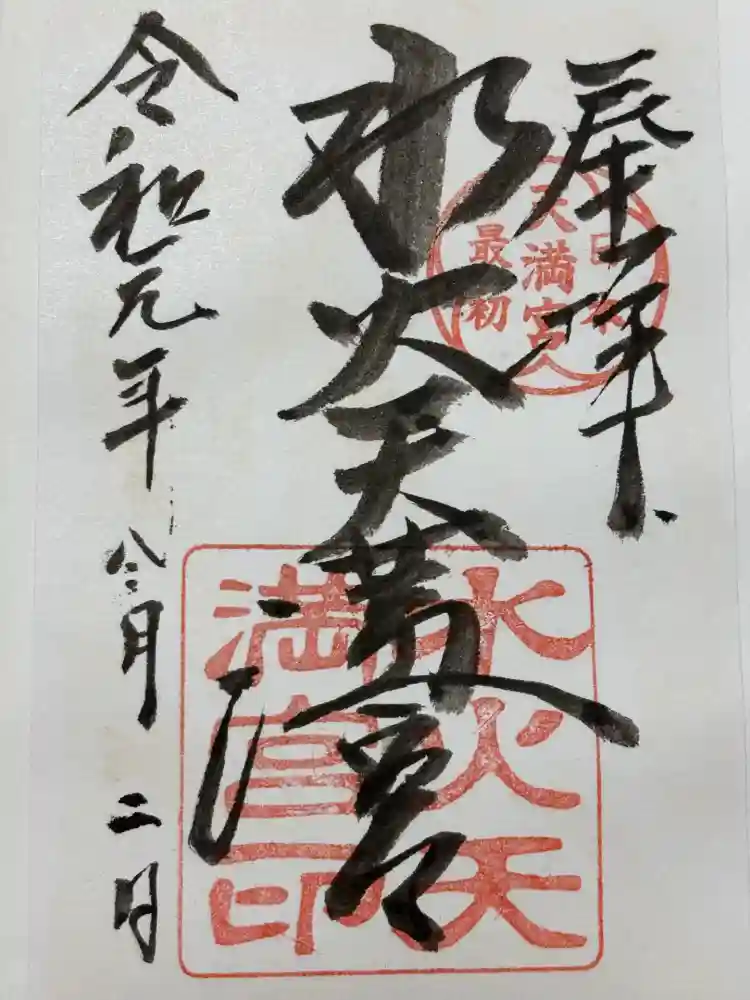 奉拝
日本
天満宮
最初
水火天満宮
水火天
満宮印
令和元年
八月
二日